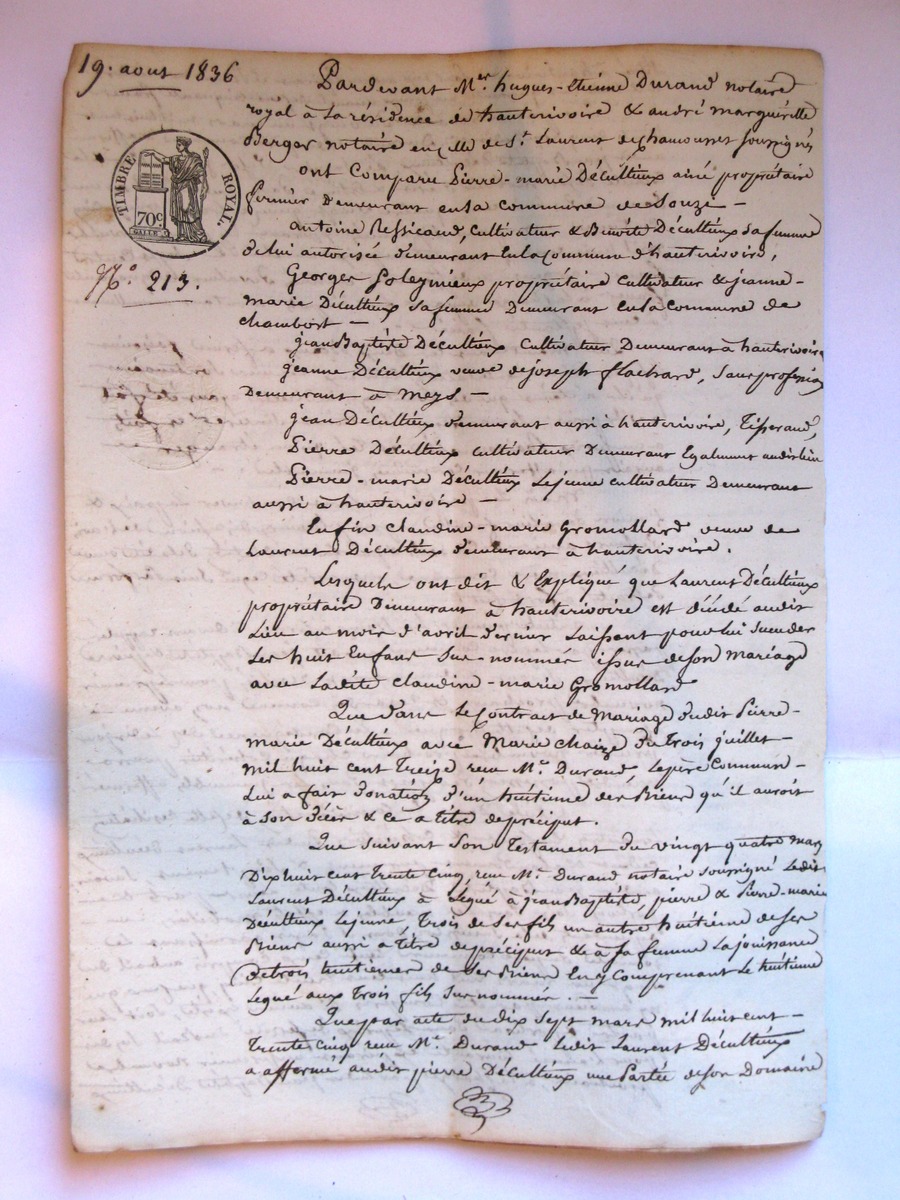 19. aout 1836
TIMBRE ROYAL
70c
N.o 213.
Pardevant M.er hugues-étienne Durand notaire
royal à La résidence de hauterivoire & andré marguerille
Berger notaire en celle de S.t Laurent de chamousset soussignés
ont Comparu Pierre-marie Décultieux ainé propriétaire
fermier Demeurant en la commune de Souzi –
antoine Ressicaud, Cultivateur & Benoite Décultieux sa femme
de lui autorisée demeurant En la commune d'hauterivoire,
Georges Soleymieux propriétaire Cultivateur & jeanne-
marie Décultieux sa femme Demeurant en la Commune de
chambost –
jean Baptiste Décultieux Cultivateur Demeurant à hauterivoire
jeanne Décultieux veuve de joseph flachard, Sans profession
Demeurant à Meys. –
jean Décultieux demeurant aussi à hauterivoire, Tisserand,
Pierre Décultieux cultivateur Demeurant Egalement audit lieu
Pierre-marie Décultieux Lejeune cultivateur Demeurant
aussi à hauterivoire –
Enfin Claudine-marie Gromollard veuve de
Laurent Décultieux demeurant à hauterivoire.
Lesquels ont dit & Expliqué que Laurent Décultieux
propriétaire Demeurant à hauterivoire est décédé audit
Lieu au mois d'avril dernier Laissant pour lui succéder
Ses huit Enfans sus-nommés issus de son mariage
avec Ladite Claudine-marie Gromollard
Que dans Le Contrat de Mariage dudit Pierre-
marie Décultieux avec Marie Chaize du trois juillet-
mil huit cent treize reçu M.e Durand, Le père Commun-
Lui a fait donation d'un huitième des Biens qu'il auroit
à son décès & ce a titre de préciput.
Que suivant Son Testament du vingt quatre mars
Dix huit cent trente cinq, reçu M.e Durand notaire soussigné Ledit
Laurent Décultieux à Légué à jean Baptiste, pierre & Pierre-marie
Décultieux Lejeune, Trois de Ses fils un autre huitième de ses
Biens aussi a titre de préciput & à sa femme La jouissance
de trois huitièmes de Ses Biens En y Comprenant Le huitième
Légué aux Trois fils sus nommés. –
Que par acte du dix sept mars mil huit cent –
trente cinq reçu M.e Durand Ledit Laurent Décultieux
a affermé audit pierre Décultieux une Partie de son Domaine